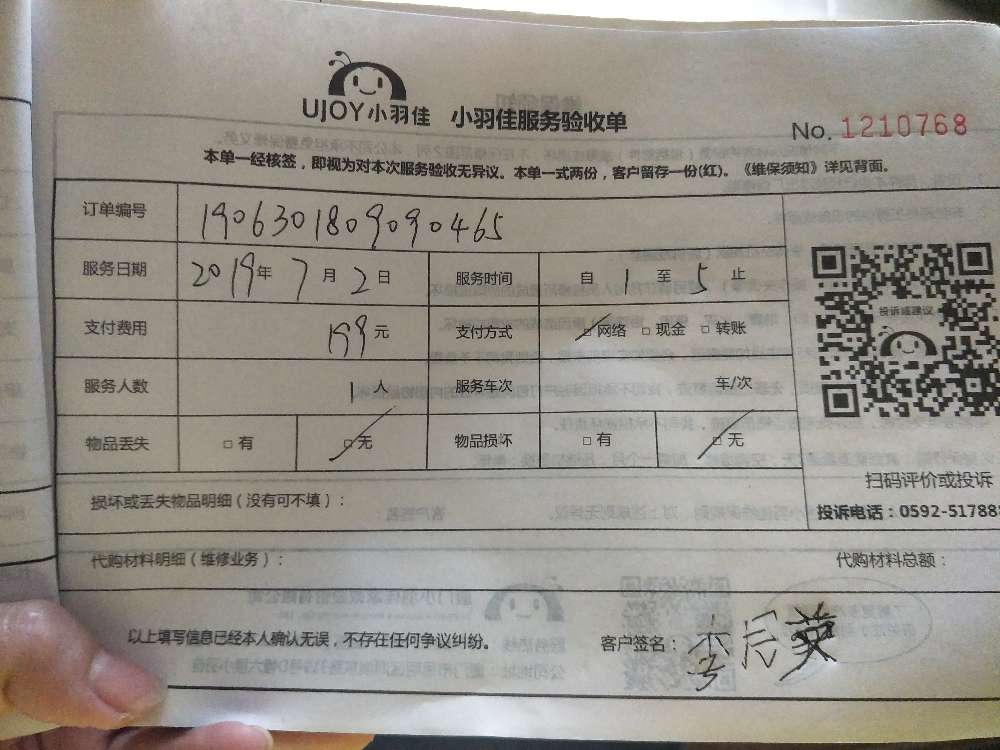 UJOY小羽佳 小羽佳服务验收单
No. 1210768
本单一经核签，即视为对本次服务验收无异议。本单一式两份，客户留存一份(红)。《维保须知》详见背面。
订单编号 190630180909090465
服务日期 2019年7月2日 服务时间 自1至5止
支付费用 199元 支付方式 网络 现金 转账
投诉或建议
服务人数 1人 服务车次 车/次
物品丢失 有 无 物品损坏 有 无
扫码评价或投诉
损坏或丢失物品明细（没有可不填）：
投诉电话：0592-517888
代购材料明细（维修业务）： 代购材料总额：
以上填写信息已经本人确认无误，不存在任何争议纠纷。 客户签名：